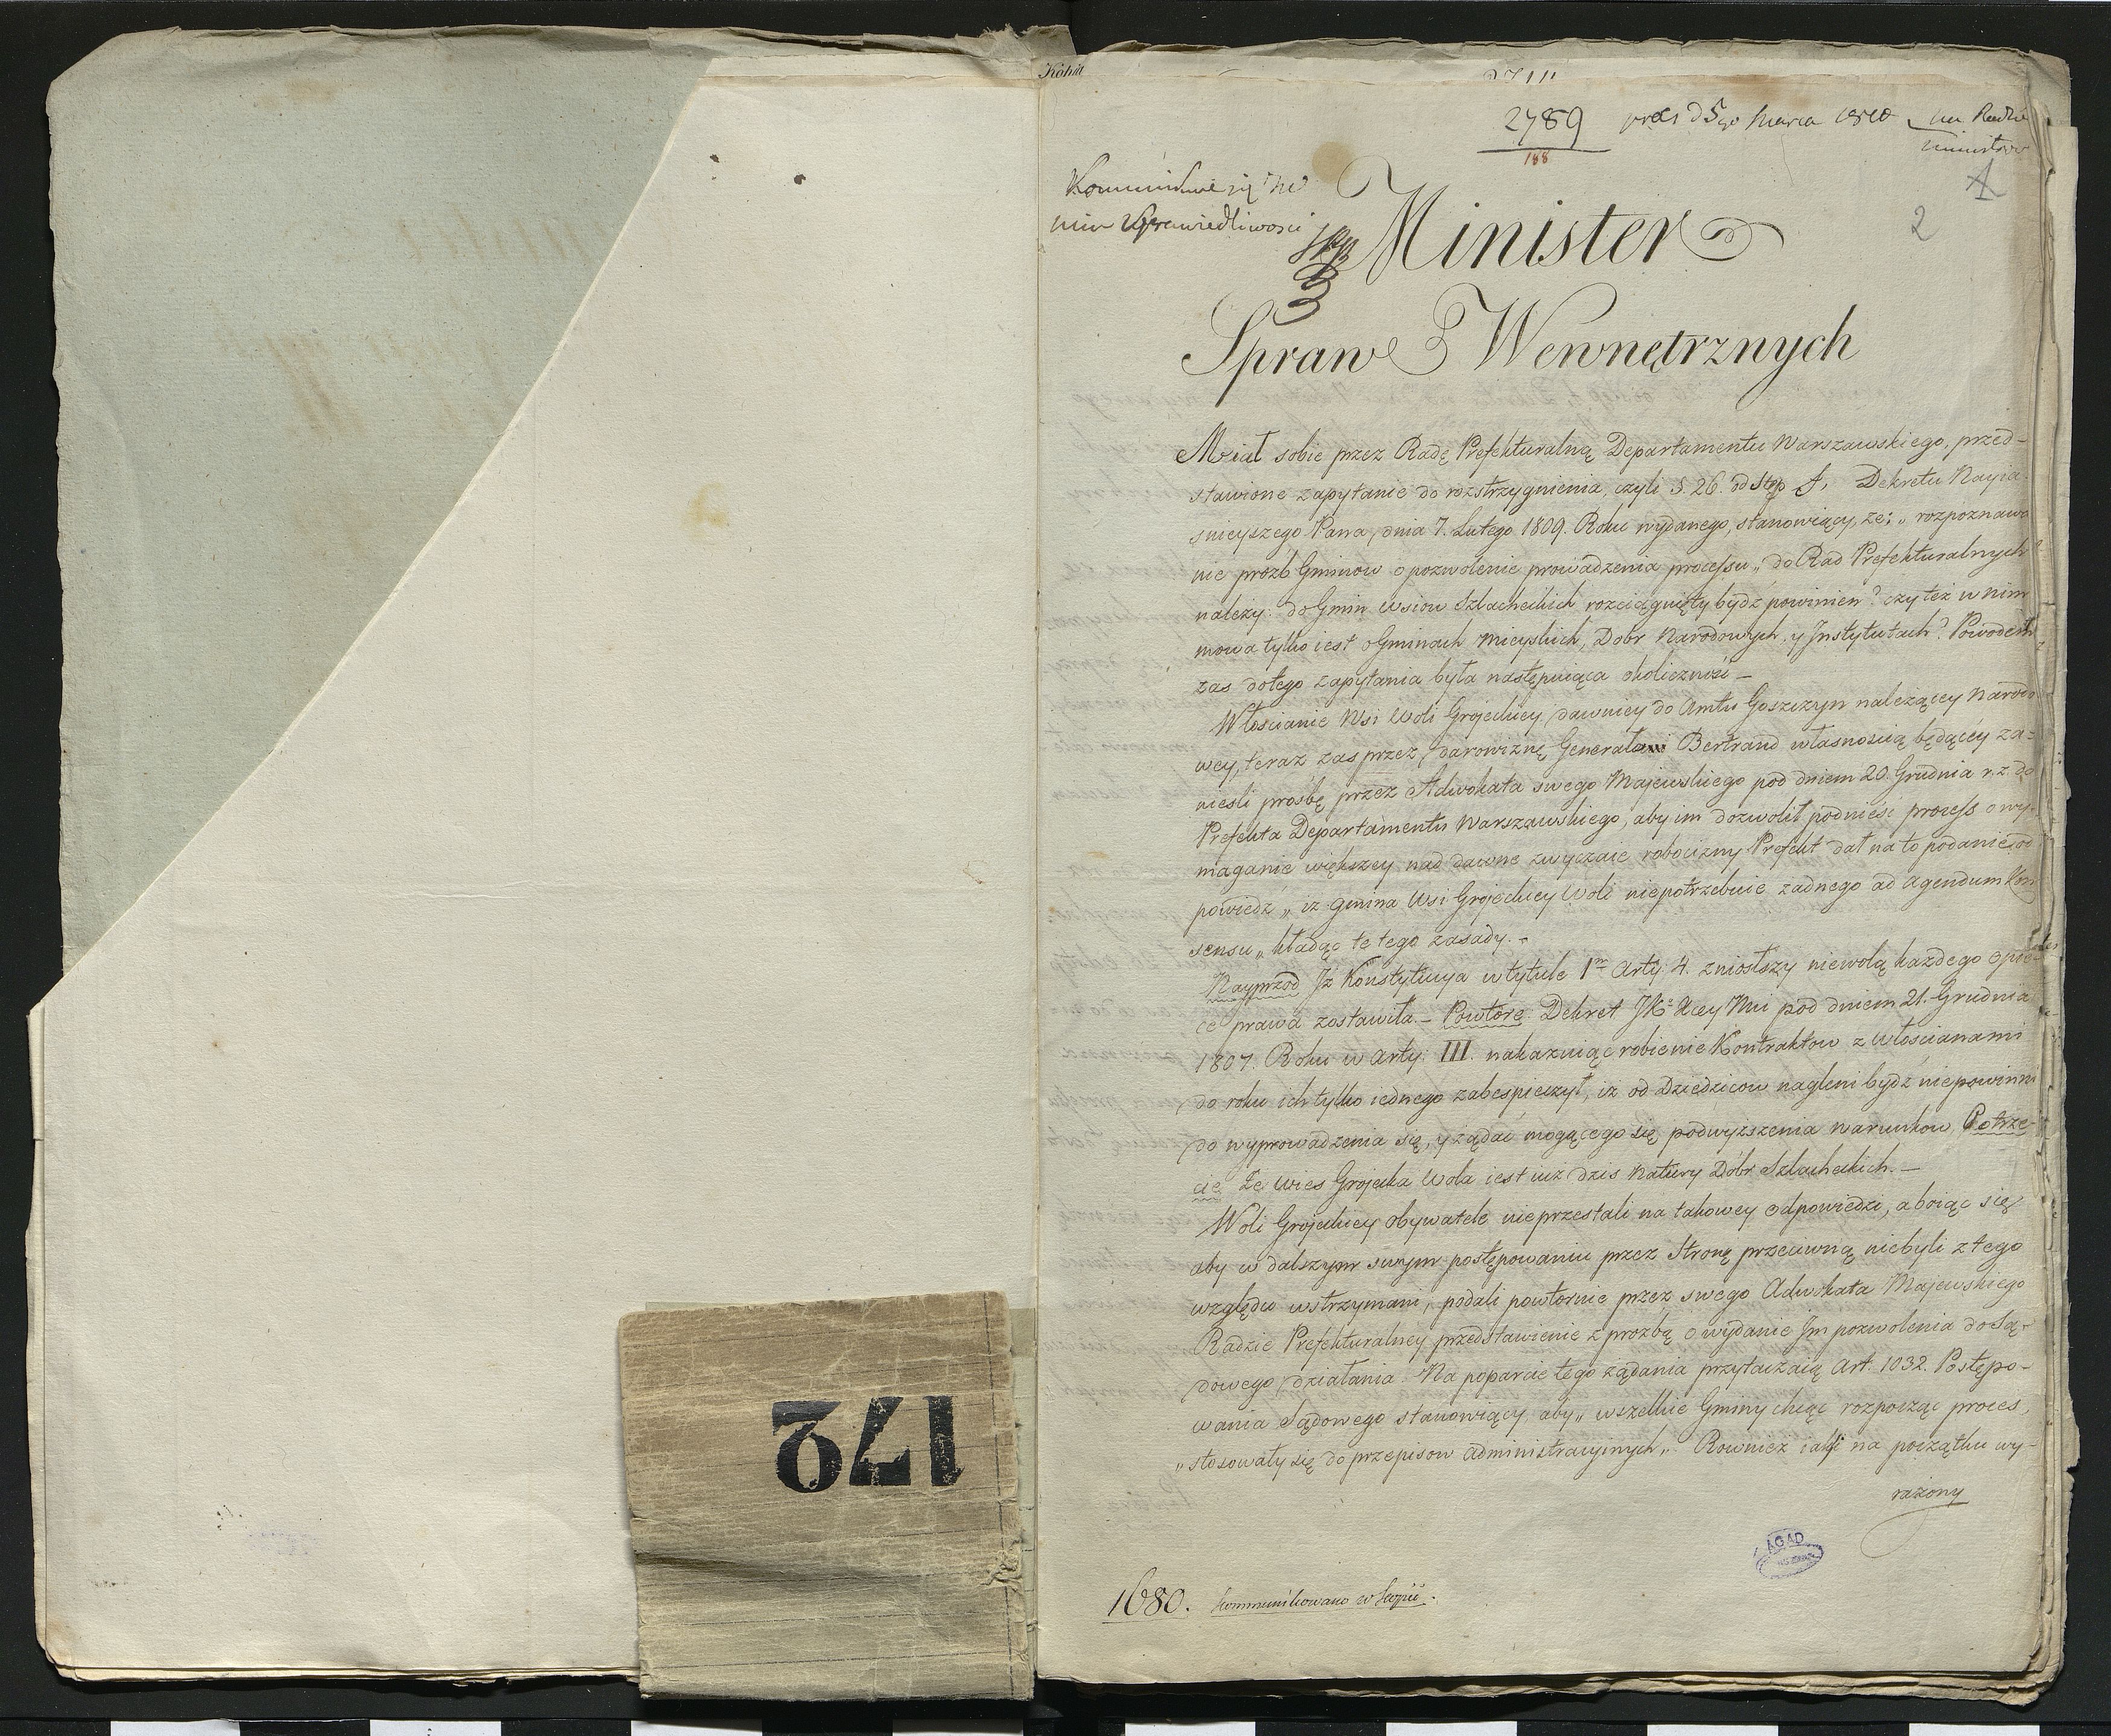 2789
188
pres d 5go Marca 1810 na Radzie
Ministrów
1
2
Kommunikuie się
Min Sprawiedliwosci
Minister
Spraw Wewnętrznych
Miał sobie przez Radę Prefekturalną Departamentu Warszawskiego, przed-
stawione zapytanie do rozstrzygnienia, czyli §. 26. odstęp f, Dekretu Nayia-
snieyszego Pana, dnia 7. Lutego 1809. Roku wydanego, stanowiący, ze: „rozpoznawa
nie prozb Gminow o pozwolenie prowadzenia processu „do Rad Prefekturalnych
nalezy: do Gmin wsiow Szlacheckich rozciągnięty bydź powinien? czy też w nim
mowa tylko iest o Gminach mieyskich, Dobr Narodowych, y Instytutach? Powodem
zas do tego zapytania była następuiąca okoliczność —
Włościanie Wsi Woli Grojeckiey, dawniey do Amtu Goszczyn nalezącey Narodo
wey, teraz zas przez darowiznę Generałowi Bertrand własnoscią będącey za-
niesli prosbę przez Adwokata swego Majewskiego pod dniem 20. Grudnia r. z. do
Prefekta Departamentu Warszawskiego, aby im dozwolił podnieść process o wy-
maganie większey nad dawne zwyczaie robocizny Prefekt dał na to podanie od
powiedź „iz gmina Wsi Grojeckiey Woli niepotrzebuie żadnego ad agendum kon
sensu „kładąc te tego zasady. —
Nayprzod Iż Konstytucya w tytule 1m Arty: 4. zniosłszy niewolą każdego opie-
ce prawa zostawiła. — Powtore Dekret JKo Xcey Mci pod dniem 21. Grudnia
1807. Roku w Arty: III. nakazuiąc robienie Kontraktow z Włościanami
do roku ich tylko iednego zabespieczył, iz od Dziedzicow nagleni bydź niepowinni
do wyprowadzenia się, y żądać mogącego się podwyzszenia warunkow. Potrze-
cie Ze wies Grojecka Wola iest iuż dzis Natury Dobr Szlacheckich. —
Woli Grojeckiey obywatele nieprzestali na takowey odpowiedzi, a boiąc się
aby w dalszym swym postępowaniu przez Stronę przeciwną niebyli z tego
względu wstrzymani, podali powtornie przez swego Adwokata Majewskiego
Radzie Prefekturalney przedstawienie z prozbą o wydanie Im pozwolenia do Są-
dowego działania. Na poparcie tego ządania przytaczaią Art. 1032. Postępo-
wania Sądowego stanowiący, aby „wszelkie Gminy chcąc rozpocząc proces,
„stosowały się do przepisow administracyinych„ Rowniez iak na początku wy-
rażony
AGAD
1680. kommunikowano w kopii.
172